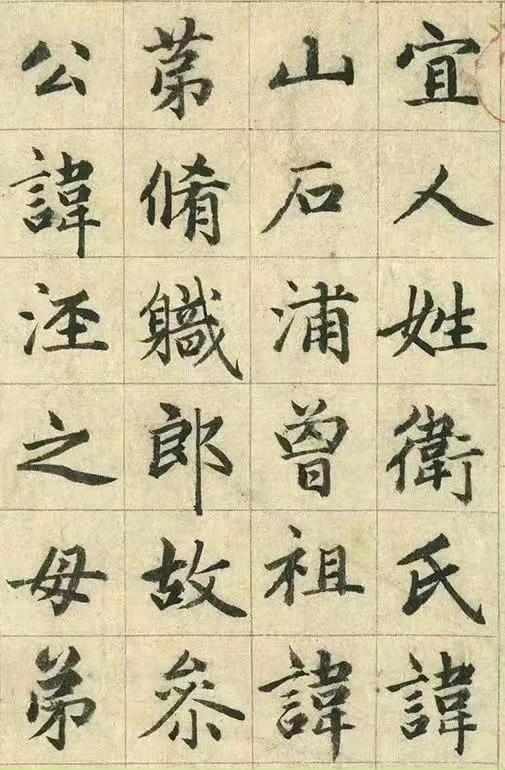 宜人姓衛氏諱
山石浦曾祖諱
苐脩軄郎故叅
公諱淫之母弟